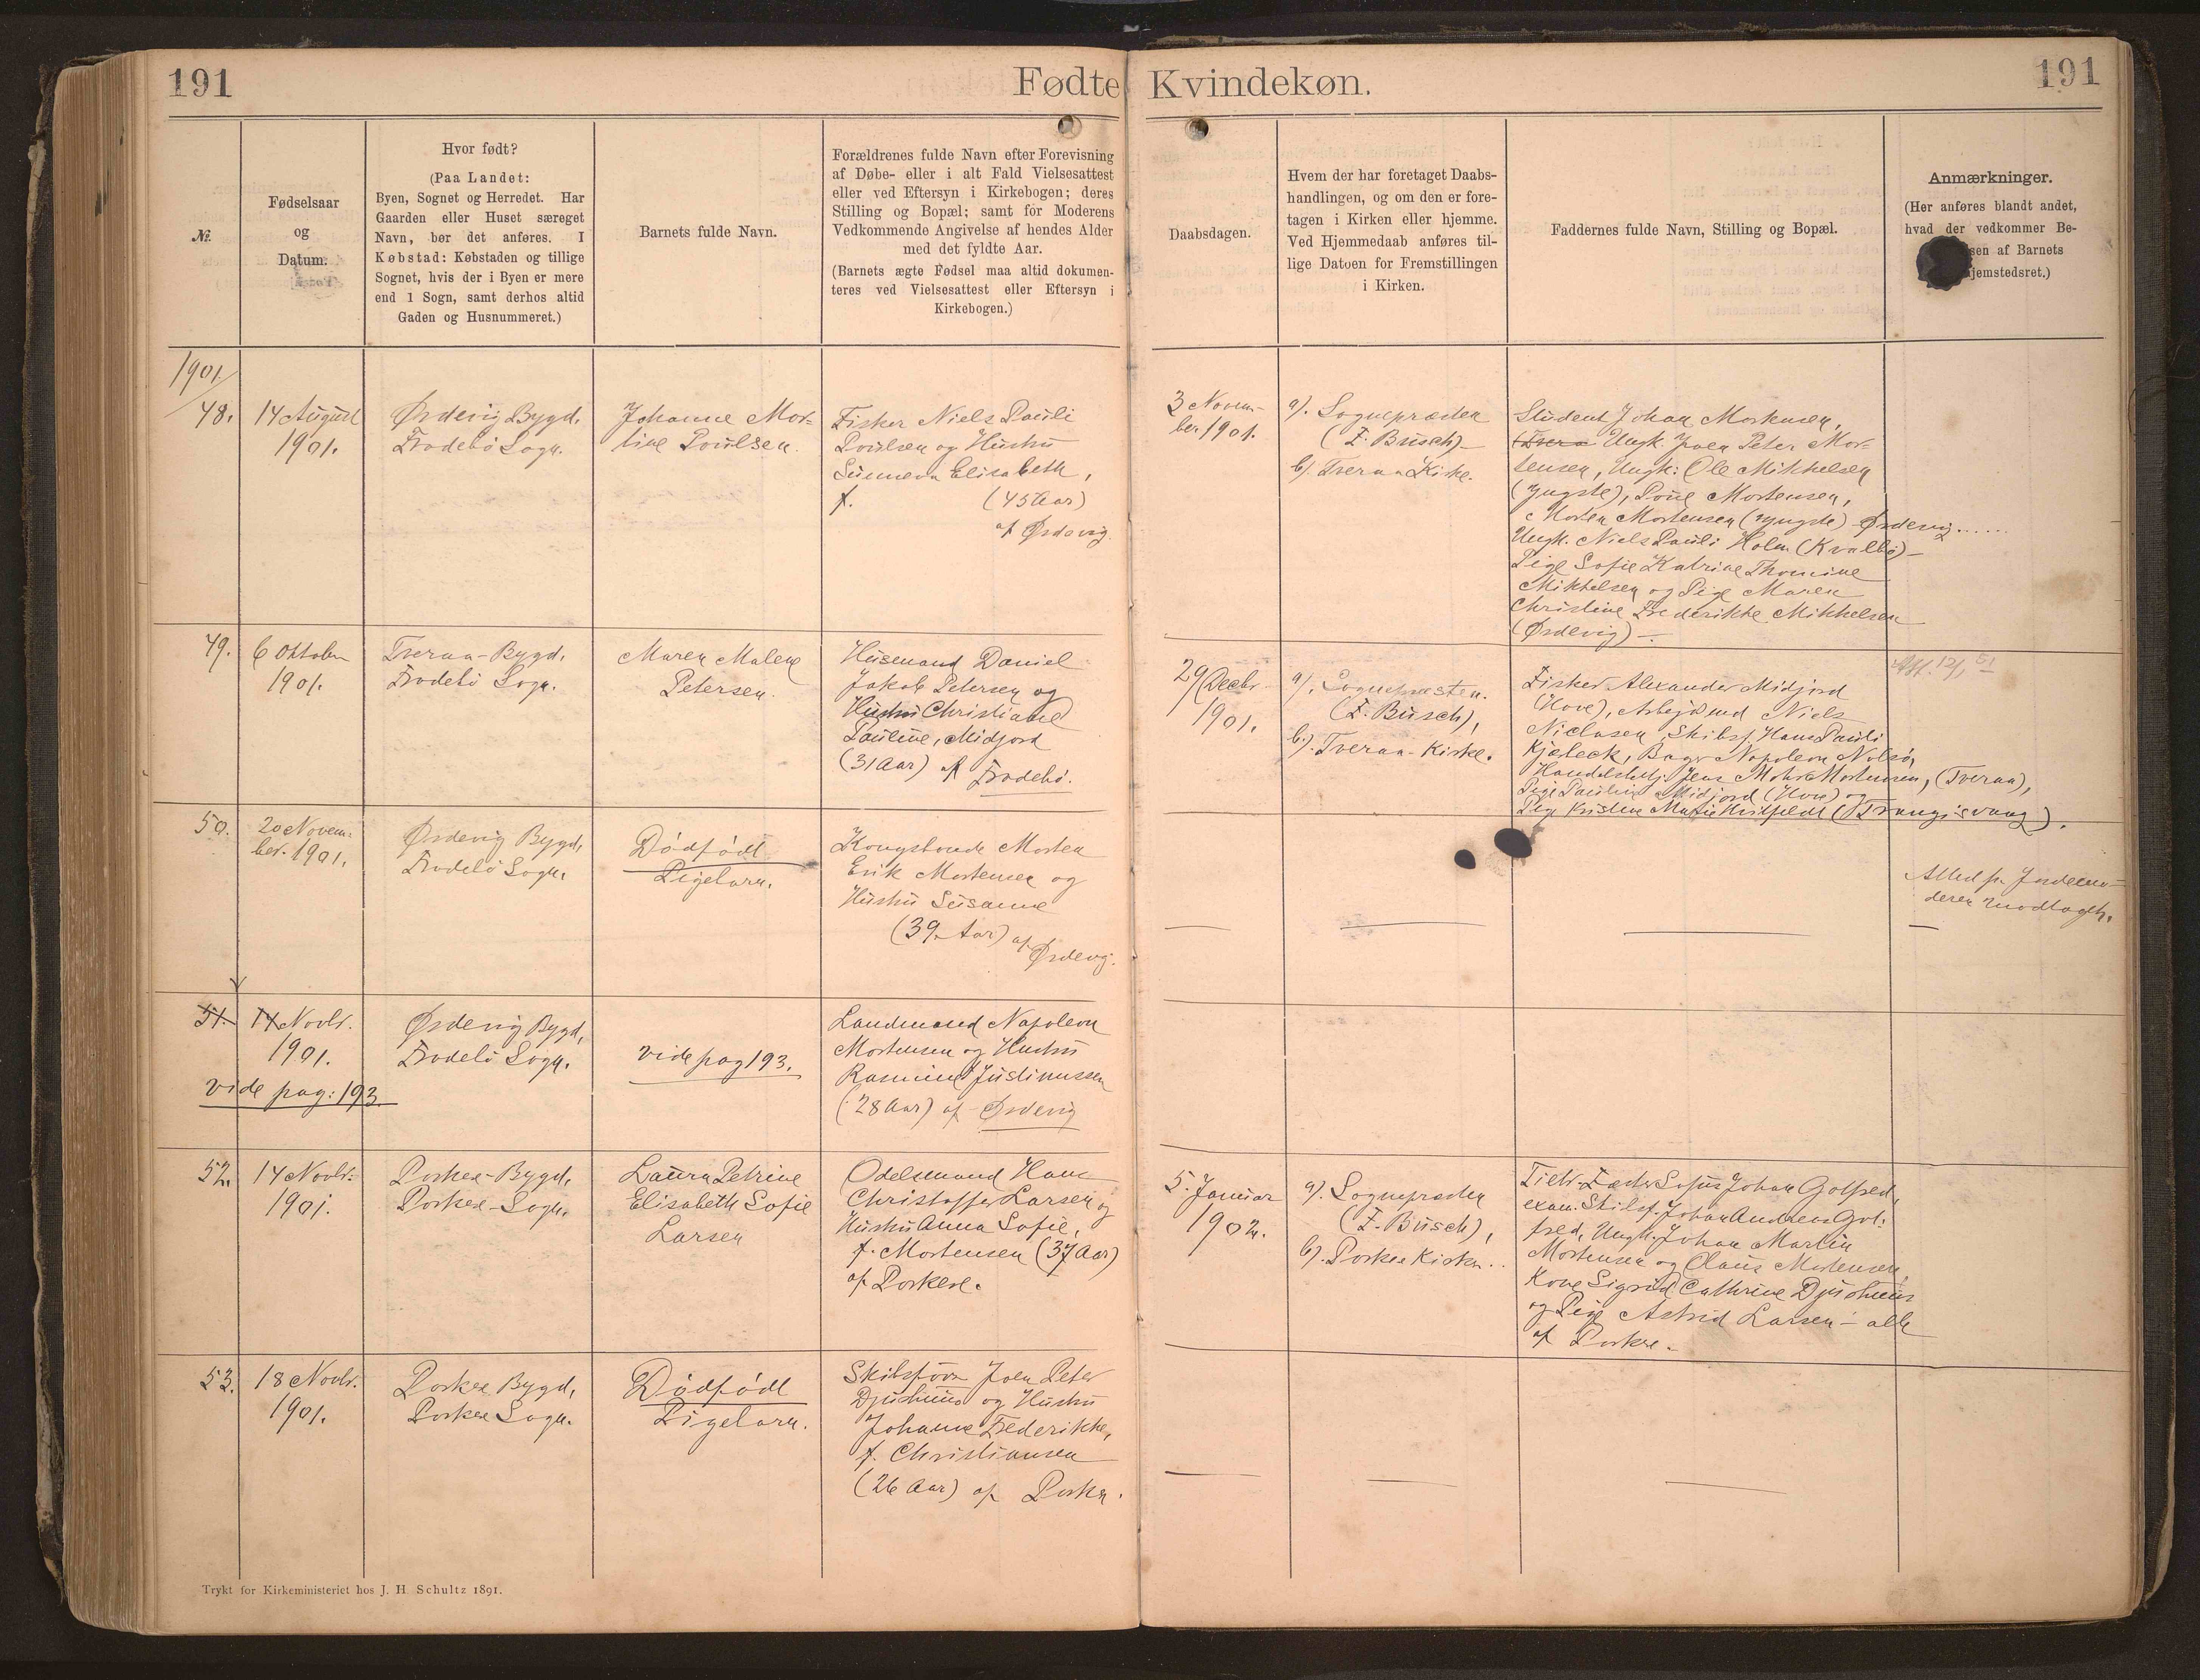 191
Fødte
Kvindekøn.
191
№.
Fødselsaar
og
Datum.
Hvor født?
(Paa Landet:
Byen, Sognet og Herredet. Har
Gaarden eller Huset særeget
Navn, bør det anføres. I
Købstad: Købstaden og tillige
Sognet, hvis der i Byen er mere
end 1 Sogn, samt derhos altid
Gaden og Husnummeret.)
Barnets fulde Navn.
Forældrenes fulde Navn efter Forevisning
af Døbe- eller i alt Fald Vielsesattest
eller ved Eftersyn i Kirkebogen; deres
Stilling og Bopæl; samt for Moderens
Vedkommende Angivelse af hendes Alder
med det fyldte Aar.
(Barnets ægte Fødsel maa altid dokumen-
teres ved Vielsesattest eller Eftersyn i
Kirkebogen.)
Daabsdagen.
Hvem der har foretaget Daabs-
handlingen, og om den er fore-
tagen i Kirken eller hjemme.
Ved Hjemmedaab anføres til-
lige Datoen for Fremstillingen
i Kirken.
Faddernes fulde Navn, Stilling og Bopæl.
Anmærkninger.
(Her anføres blandt andet,
hvad der vedkommer Be-
sen af Barnets
jemstedsret.)
1901.
48.
14 August
1901.
Ørdevig Bygd,
Frodebø Sogn.
Johanne Mor-
tine Poulsen.
Fisker Niels Pauli
Poulsen og Hustru
Sunneva Elisabeth,
f. (45 Aar)
af Ørdevig.
3 Novem-
ber 1901.
a). Sognepræsten
(F. Busch) -
b). Tveraa Kirke.
Student Johan Mortensen,
(Tvera Ungk. Joen Peter Mor-
tensen, Ungk: Ole Mikkelsen
(yngste), Poul Mortensen,
Morten Mortensen (yngste) Ørdevig.....
Ungk. Niels Pauli Holm (Kvalbø) -
Pige Sofie Katrine Thomine
Mikkelsen og Pige Maren
Christine Frederikke Mikkelsen
(Ørdevig) -.
49.
6 Oktober
1901.
Tveraa-Bygd,
Frodebø Sogn.
Maren Malene
Petersen.
Husmand Daniel
Jakob Petersen og
Hustru Christiane
Pauline, Midjord
(31 Aar) af Frodebø.
29 Decbr
1901.
a). Sognepræsten.
(F. Busch),
b). Tveraa-Kirke.
Fisker Alexander Midjord
(Hove), Arbejdsmd Niels
Niclasen, Skibsf. Hans Pauli
Kjøleck, Bager Napoleon Nolsø,
Handelsbetj. Jens Mohr Mortensen, (Tveraa),
Pige Pauline Midjord (Hove) og
Pige Kristine Marie Hvitfeldt (Trangisvaag).
50.
20 Novem-
ber. 1901.
Ørdevig Bygd,
Frodebø Sogn.
Dødfødt
Pigebarn.
Kongsbonde Morten
Erik Mortensen og
Hustru Susanne
(39. Aar) af
Ørdevig.
Atted fr. Jordemo-
deren modtagth.
51.
14 Novbr.
1901.
vide pag: 193.
Ørdevig Bygd,
Frodebø Sogn.
vide pag 193.
Landmand Napoleon
Mortensen og Hustru
Rasmine Justinussen
(28 Aar) af Ørdevig
52.
14 Novbr.
1901.
Porkere-Bygd,
Porkere-Sogn.
Laura Petrine
Elisabeth Sofie
Larsen
Odelsmand Hans
Christoffer Larsen og
Hustru Anna Sofie,
f. Mortensen (37 Aar)
af Porkere.
5. Januar
1902.
a). Sognepræsten
(F. Busch),
b). Porkere Kirke.
Sofus Johan Gotfred,
exam. Skibsf. Johan Andreas Got-
fred, Ungk. Johan Martin
Mortensen og Olaus Mortensen,
Kone Sigrid Cathrine Djurhuus
og Pige Astrid Larsen - alle
af Porkere.
53.
18 Novbr.
1901.
Porkere Bygd,
Porkere Sogn.
Dødfødt
Pigebarn.
Skibsfører Joen Peter
Djurhuus og Hustru
Johanne Frederikke,
f. Christiansen
(26 Aar) af Porkere.
Trykt for Kirkeministeriet hos J. H. Schultz 1891.